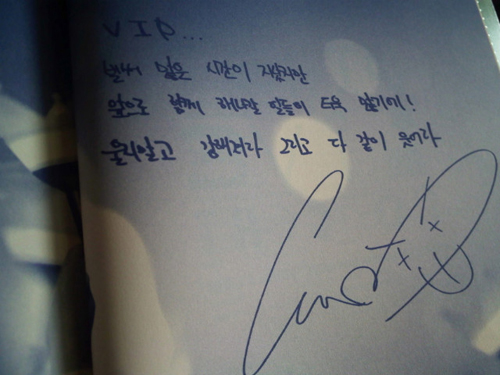 VIP...
벌써 많은 시간이 지났지만
앞으로 함께 해나갈 일들이 더욱 많기에!
울지말고 강해져라 그리고 다 같이 웃어라